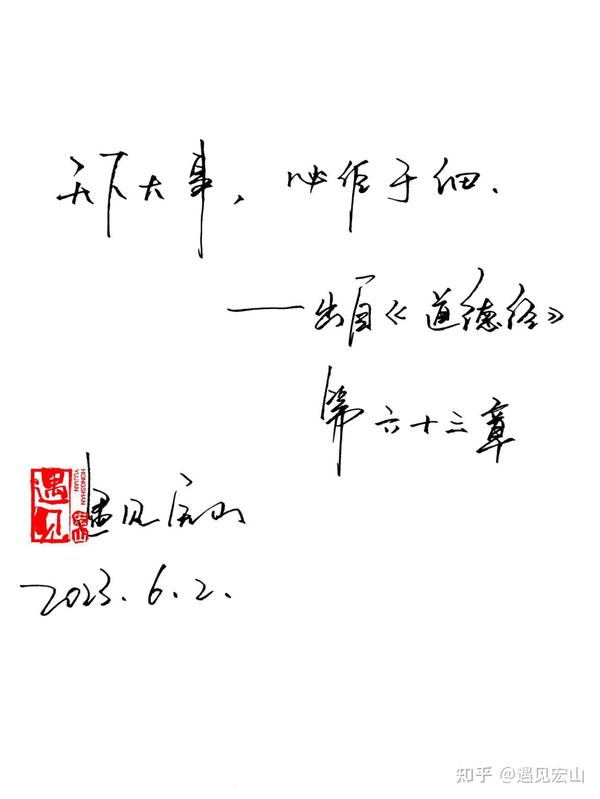 天下大事，必作于细.
——出自《道德经》
第六十三章
遇见
HONGSHAN
YUJIAN
宏山
遇见宏山
2023.6.2.
知乎 @遇见宏山